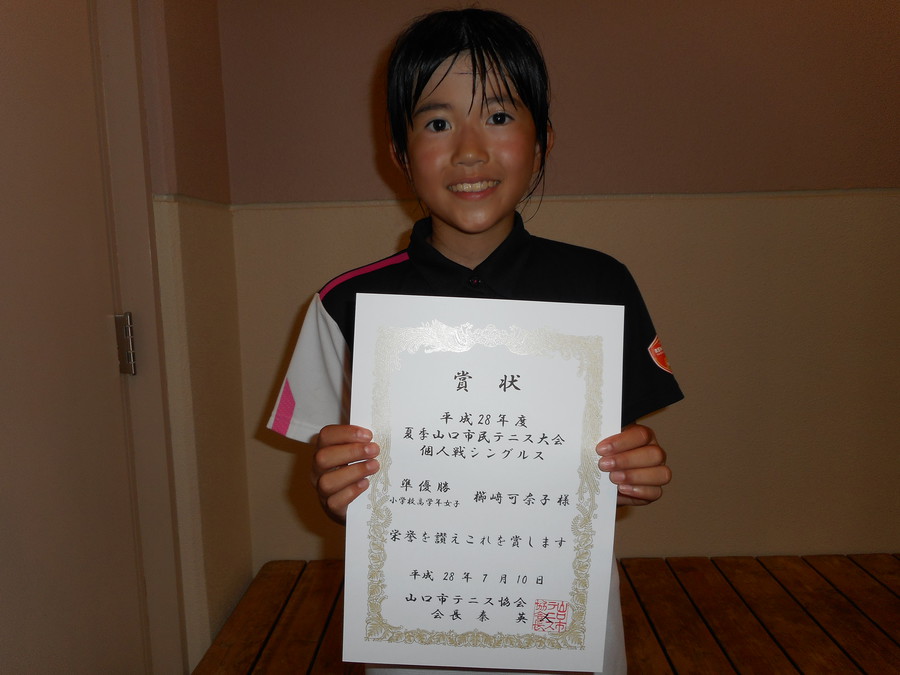 賞 状
平成28年度
夏季山口市民テニス大会
個人戦シングルス
準優勝
小学校高学年女子
櫛﨑可奈子様
栄誉を讃えこれを賞します
平成 28 年 7 月 10 日
山口市テニス協会
会長 秦 英